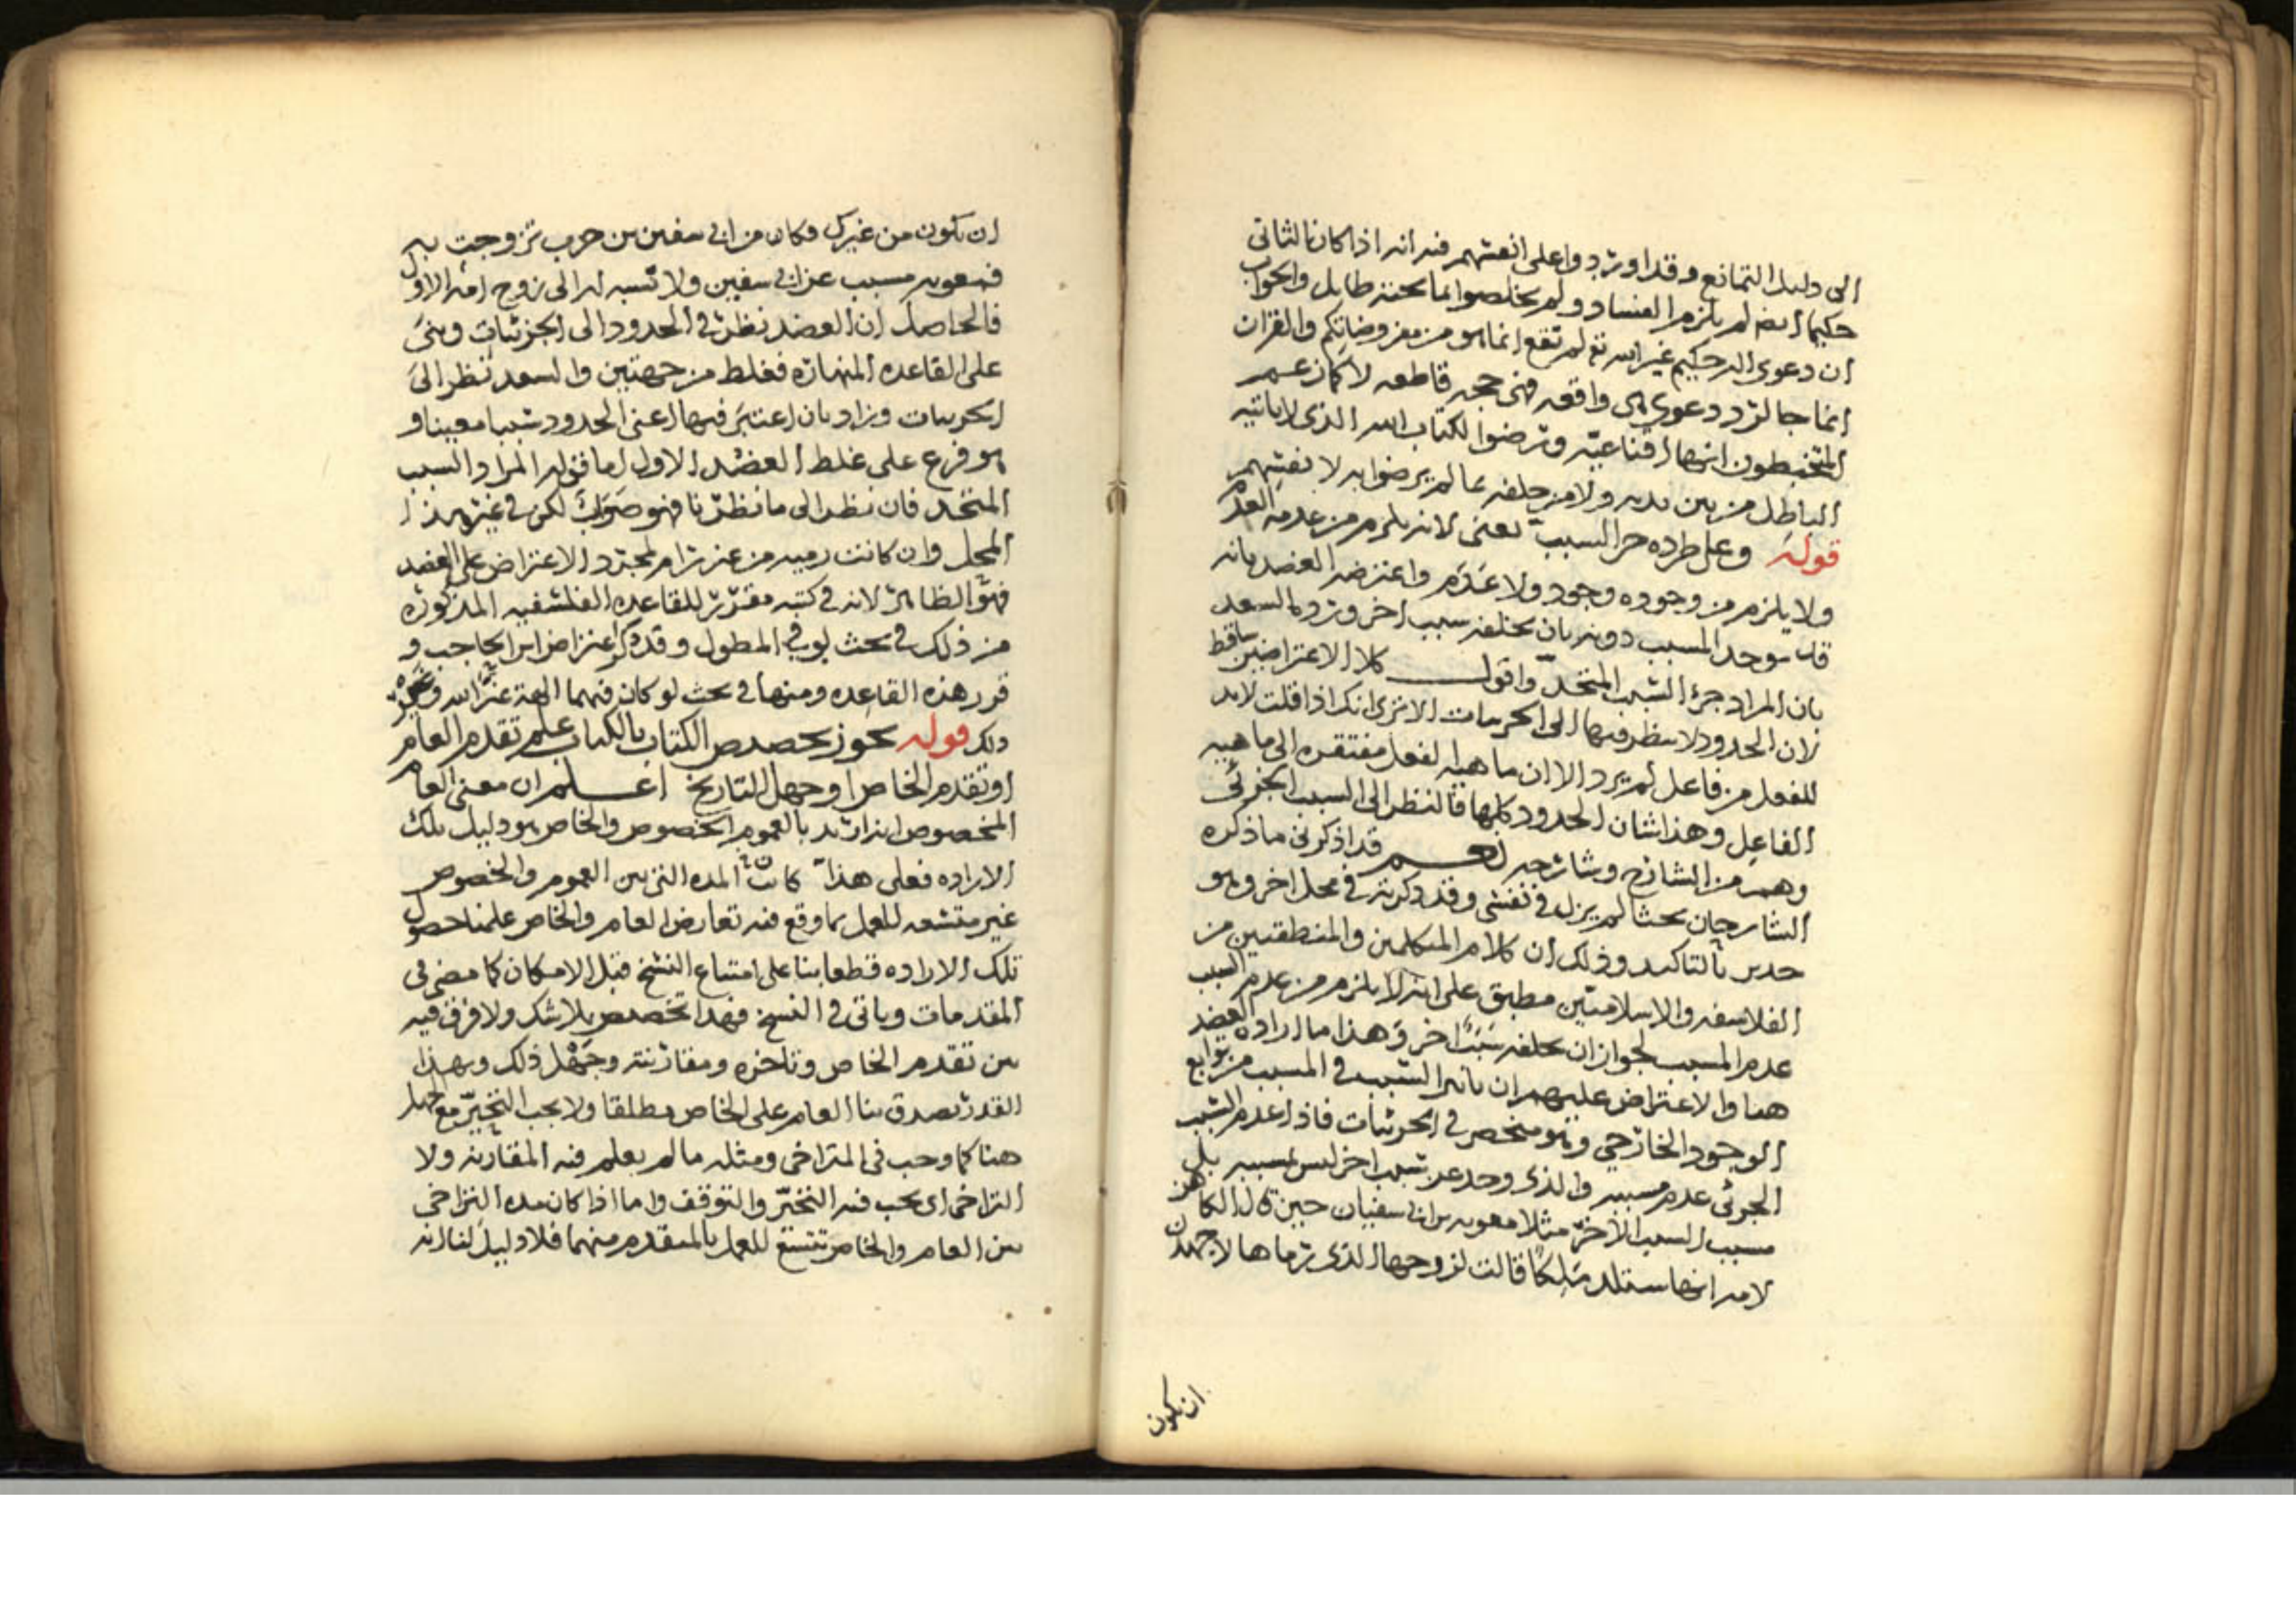 الى دليل التمانع وقد اوردوا على انفسهم فيه انه اذا كان الثاني
حكيما ايضا لم يلزم الفساد ولم يخلصوا بما تحته طايل والجواب
ان دعوى اله حكيم غير الله تع لم تقع انما هو من مفروضاتكم والقران
انما جا لرد دعوى هى واقعه فهى حجه قاطعه لا كما زعم
المتخبطون انها اقناعيه وترضوا لكتاب الله الذى لا ياتيه
الباطل من بين يديه ولا من خلفه بما لم يرضوا به لانفسهم
قوله وعلى طرده حر السبب يعنى لانه يلزم من عدمه العدم
ولا يلزم من وجوده وجود ولا عدم واعترضه العضد بانه
قد يوجد المسبب دونه بان يخلفه سبب اخر ورده السعد
بان المراد جزء السبب المتحد واقول كلا الاعتراضين ساقط
لان الحدود لا ينظر فيها الى الجزئيات الا ترى انك اذا قلت لا بد
للفعل من فاعل لم يرد الا ان ماهية الفعل مفتقره الى ماهية
الفاعل وهذا شان الحدود كلها فالنظر الى السبب الجزئى
وهم من الشارح وشارحه نعم قد اذكرنى ما ذكره
الشارحان بحثا لم يزل فى نفسى وقد ذكرته فى محل اخر وهو
جدير بالتاكيد وذلك ان كلام المتكلمين والمنطقيين من
الفلاسفه والاسلاميين مطبق على انه لا يلزم من عدم السبب
عدم المسبب لجواز ان يخلفه سببا اخر وهذا ما اراده العضد
هنا والاعتراض عليهم ان تاثير السبب فى المسبب من توابع
الوجود الخارجى وهو منحصر فى الجزئيات فاذا عدم السبب
الجزئى عدم مسببه والذى وجد عن سبب اخر ليس مسببه بل
مسبب السبب الاخر مثلا معويه بن ابى سفيان حين قال الكاهن
لامه انها ستلد ملكا قالت لزوجها الذى رماها لاجهدن
ان تكون
ان تكون من غيرك فكان من ابى سفين بن حرب تزوجت به
فمعويه مسبب عن ابى سفين ولا نسبه له الى زوج امه الاول
فالحاصل ان العضد نظر فى الحدود الى الجزئيات وبنى
على القاعده المنهاره فغلط من جهتين والسعد نظر الى
الجزئيات وزاد بان اعتبر فيها اعنى الحدود شيا معينا و
هو فرع على غلط العضد الاول اما قوله المراد السبب
المتحد فان نظر الى ما نظرنا فهو صواب لكن فى غير هذا
المحل وان كانت رميه من غير رام لمجرد الاعتراض على العضد
فهو الظاهر لانه فى كتبه مقرر للقاعده الفلسفيه المذكوره
من ذلك فى بحث لو فى المطول وقد ذكر اعتراض ابن الحاجب و
قرر هذه القاعده ومنها فى بحث لو كان فيهما الهة غير الله ونحو
ذلك قوله يجوز تخصيص الكتاب بالكتاب علم تقدم العام
او تقدم الخاص او جهل التاريخ اعلم ان معنى العام
المخصوص انه اريد بالعموم الخصوص والخاص هو دليل تلك
الاراده فعلى هذا ان كانت المده التى بين العموم والخصوص
غير متسعه للعمل بما وقع فيه تعارض العام والخاص علمنا حصول
تلك الاراده قطعا بنا على امتناع النسخ قبل الامكان كما مضى فى
المقدمات وياتى فى النسخ فهذا تخصيص بلا شك ولا فرق فيه
بين تقدم الخاص وتاخره ومقارنته وجهل ذلك وبهذا
القدر يصدق بنا العام على الخاص مطلقا ولا يجب التخير مع الجهل
هنا كما وجب فى المتراخى ومثله ما لم يعلم فيه المقارنه ولا
التراخى اى يجب فيه التخير والتوقف واما اذا كان مده التراخى
بين العام والخاص تتسع للعمل بالمتقدم منهما فلا دليل لنا انه